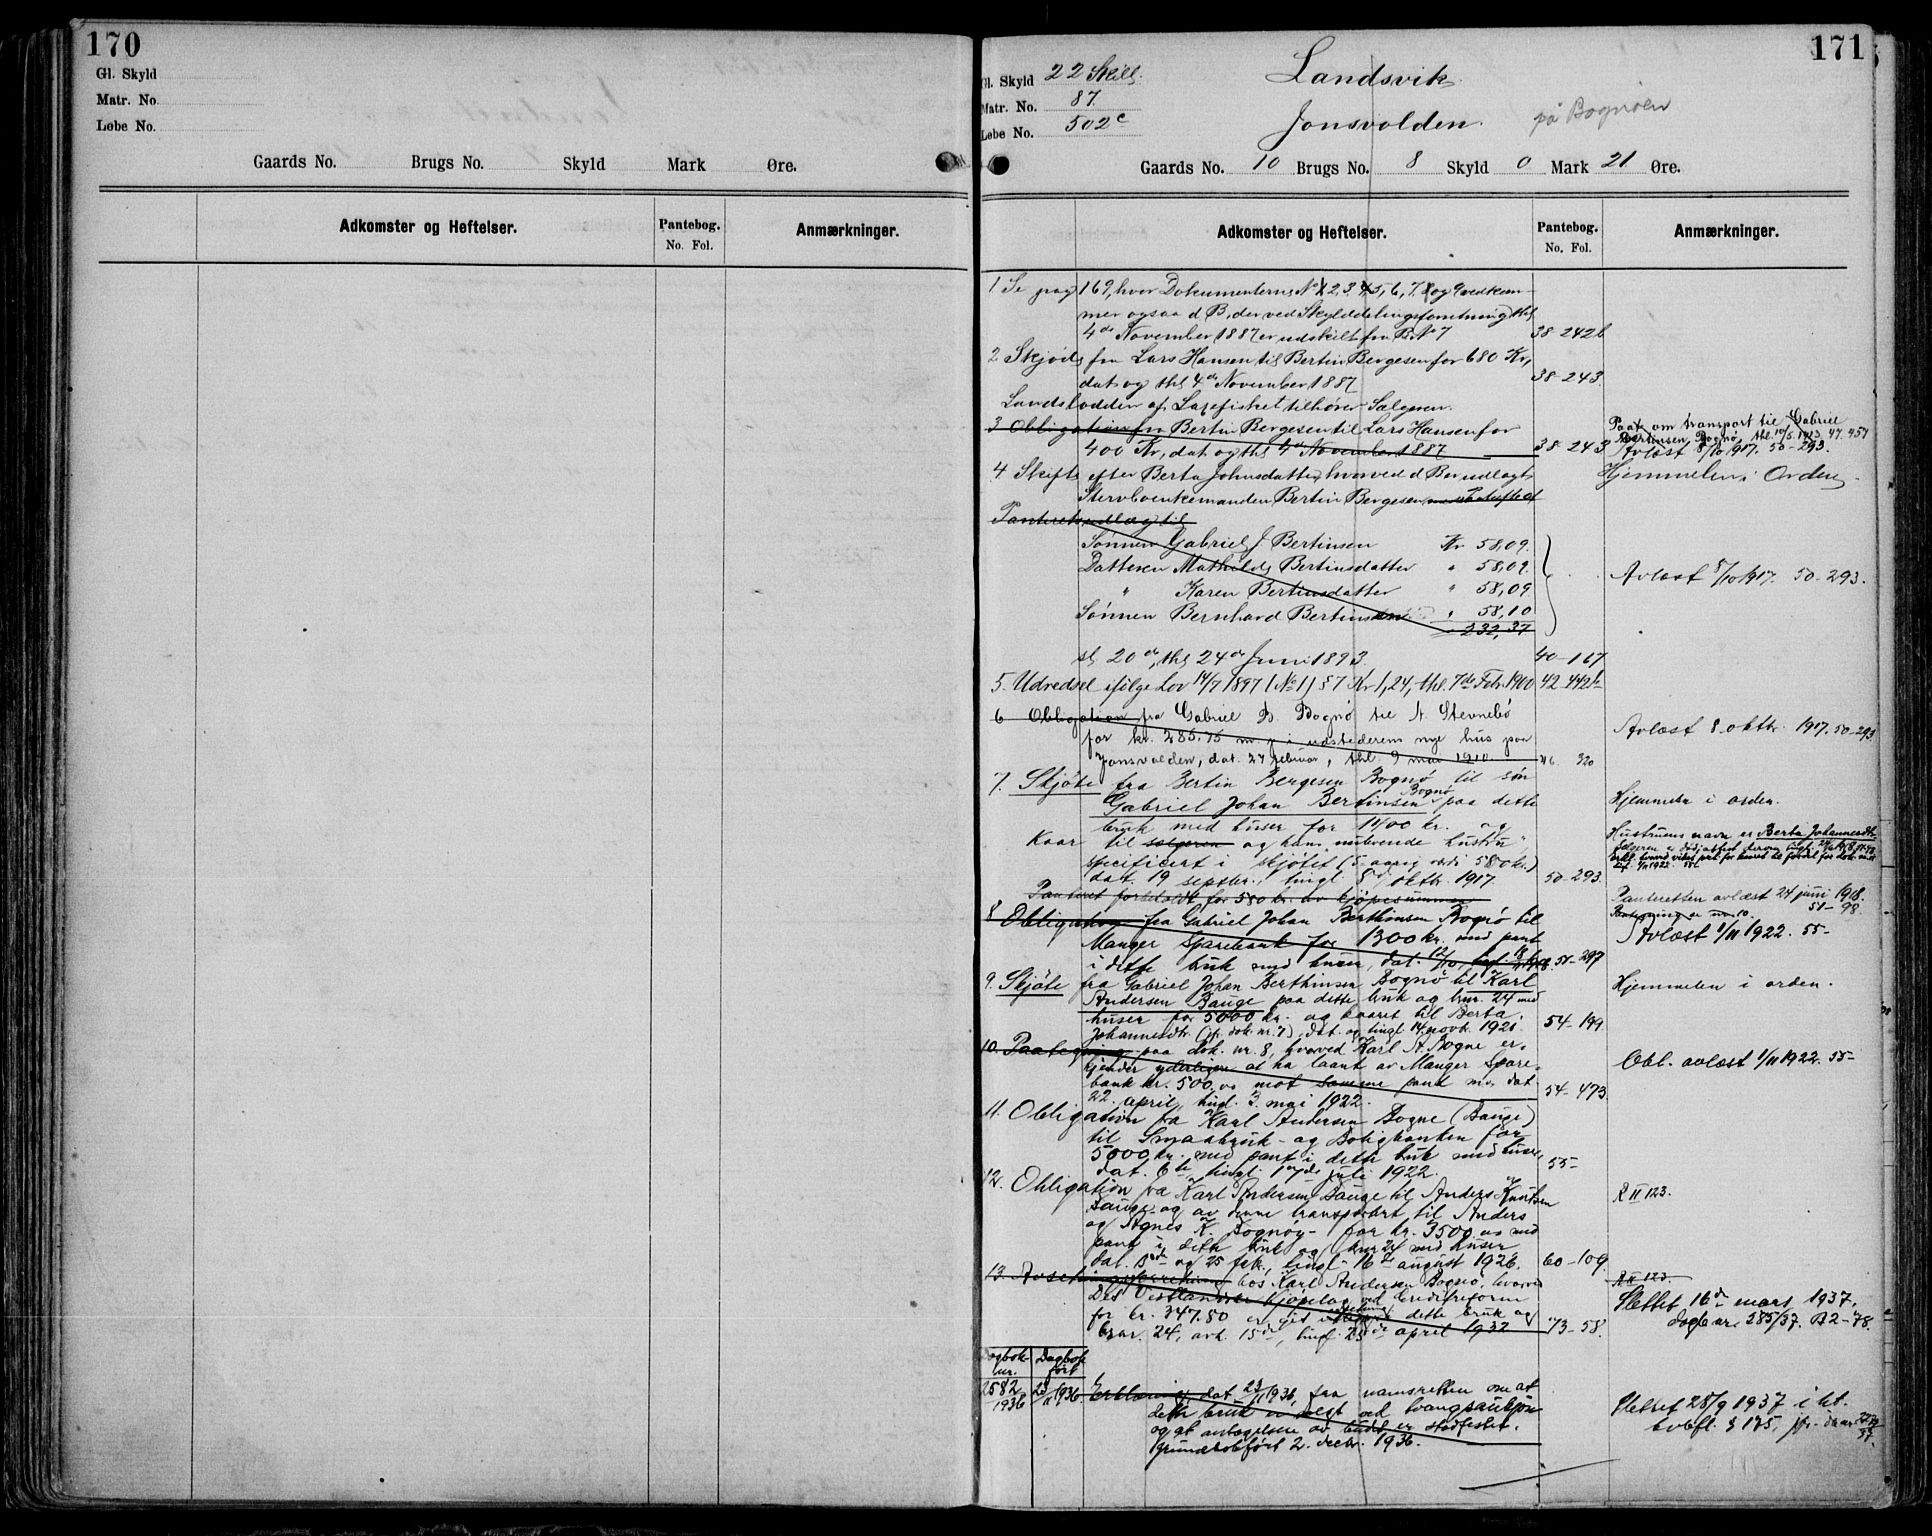 170
Gl. Skyld
Matr. No.
Løbe No.
Gaards No. Brugs No. Skyld Mark Øre.
Adkomster og Heftelser. Pantebog. No. Fol. Anmærkninger.
171
Gl. Skyld 22 Skill. Landsvik
Matr. No. 87.
Løbe No. 502c Jonsvolden. på Bognøen
Gaards No. 10 Brugs No. 8 Skyld 0 Mark 21 Øre.
Adkomster og Heftelser. Pantebog. No. Fol. Anmærkninger.
1 Se pag 169, hvor Dokumenterne No 1, 2, 3, 4, 5, 6, 7, 8 og 9 vedkom-
mer ogsaa d B, der ved Skylddelingsforretning thl
4de November 1887 er udskilt fra B No 7 38-242b
2 Skjøde fra Lars Hansen til Bertin Bergesen for 680 Kr,
dat og thl 4de November 1887 38-243.
Landslodden af Laxefisket tilhører Sælgeren.
3 Obligation fra Bertin Bergesen til Lars Hansen for
400 Kr, dat og thl 4de November 1887 38-243
Paat om transport til Gabriel
Bertinsen Bognø, thl. 10/5 1913 47. 457
Avlæst 8/10 1917. 50-293.
4 Skifte efter Berta Johnsdatter, hvorved d B er udlagt
Stervboenkemanden Bertin Bergesen mod Hefte af
Hjemmelen i Orden.
Panteretsudlæg til
Sønnen Gabriel J Bertinsen Kr 58,09.
Datteren Mathilde Bertinsdatter " 58,09.
" Karen Bertinsdatter " 58,09
Sønnen Bernhard Bertinsen " 58,10
232,37
Avlæst 8/10 1917. 50-293.
sl 20de, thl 24de Juni 1893. 40-167
5. Udredsel ifølge Lov 14/7 1897 (No 1) § 7 Kr 1,24, thl. 7de Febr 1900 42-442b
6 Obligation fra Gabriel B. Bognø til N. Stevnebø
for kr. 285.75 m. p. i udstederens nye hus paa
Jonsvolden, dat. 27 februar, thl. 9 mai 1910. 46. 320
Avlæst 8. oktbr. 1917. 50-293
7. Skjøte fra Bertin Bergesen Bognø til søn
Gabriel Johan Bertinsen Bognø paa dette
bruk med huser for 1400 kr. og
Kaar til sælgeren og hans nulevende hustru,
specificert i skjøtet (5 aarig værdi 580 kr.)
dat. 19 septbr., tingl. 8de oktbr. 1917. 50-293.
Hjemmelen i orden.
Hustruens navn er Berta Johannesdtr.
Panteret forbeholdt for 580 kr. av kjøpesummen
Panteretten avlæst 24 juni 1918.
51-98.
8 Obligation fra Gabriel Johan Berthinsen Bognø til
Manger Sparebank for 1300 kr. med pant
i dette bruk med huser, dat. 12/10, 51-297
Paategning se nr. 10.
Avlæst 1/11 1922. 55-
9. Skjøte fra Gabriel Johan Berthinsen Bognø til Karl
Andersen Bauge paa dette bruk og brnr. 24 med
huser for 5000 kr. og kaaret til Berta
Johannesdtr. (jfr. dok. nr. 7), dat. og tingl. 14. novbr. 1921. 54-199
Hjemmelen i orden.
10. Paategning paa dok. nr. 8, hvorved Karl A. Bogne er-
kjender yderligere at ha laant av Manger Spare-
bank kr. 500,00 mot samme pant m. v. dat.
22. april, tingl. 3. mai 1922. 54-473
Obl. avlæst 1/11 1922. 55-
11. Obligation fra Karl Andersen Bogne (Bauge)
til Smaabruk- og Boligbanken for
5000 kr. med pant i dette bruk med huser,
dat. 6te, tingl. 17de juli 1922. 55-
12. Obligation fra Karl Andersen Bauge til Anders Knutsen
Bauge og av denne transportert til Anders
og Agnes K Bognøy for kr. 3500,00 med
pant i dette bruk og brnr. 24 med huser
dat. 15de og 25 febr., tingl. 16de august 1926. 60-109.
R II 123.
13. Avsetningsforretning hos Karl Andersen Bognø, hvorved
Det Vestlandske Kjøpelag ved Creditreform
for kr. 347.50 er git utlegg i dette bruk og
brnr. 24, avh. 15de, tingl. 23de april 1932 73-58.
R II 123.
Slettet 16de mars 1937.
dagb nr. 585/37. B2-78.
Dagbok-nr. Dagbok ført
2582 1936 23/11 1936 Erklæring dat 23/11 1936, fra namsretten om at
dette bruk er solgt ved tvangsauksjon
og at antagelsen av budet er stadfestet.
Grunnbokført 2. decbr. 1936.
Slettet 28/9 1937 i ht.
tvbfl. § 175,